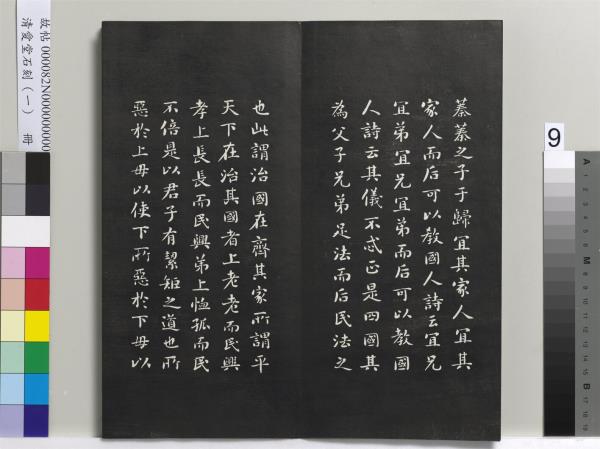 蓁蓁之子于歸宜其家人宜其
家人而后可以教國人詩云宜兄
宜弟宜兄宜弟而后可以教國
人詩云其儀不忒正是四國其
為父子兄弟足法而后民法之
也此謂治國在齊其家所謂平
天下在治其國者上老老而民興
孝上長長而民興弟上恤孤而民
不倍是以君子有絜矩之道也所
惡於上毋以使下所惡於下毋以
故帖 000082N000000000
清愛堂石刻(一) 冊
9
A
1
2
3
4
5
6
M
8
9
10
11
12
13
14
15
B
17
18
19